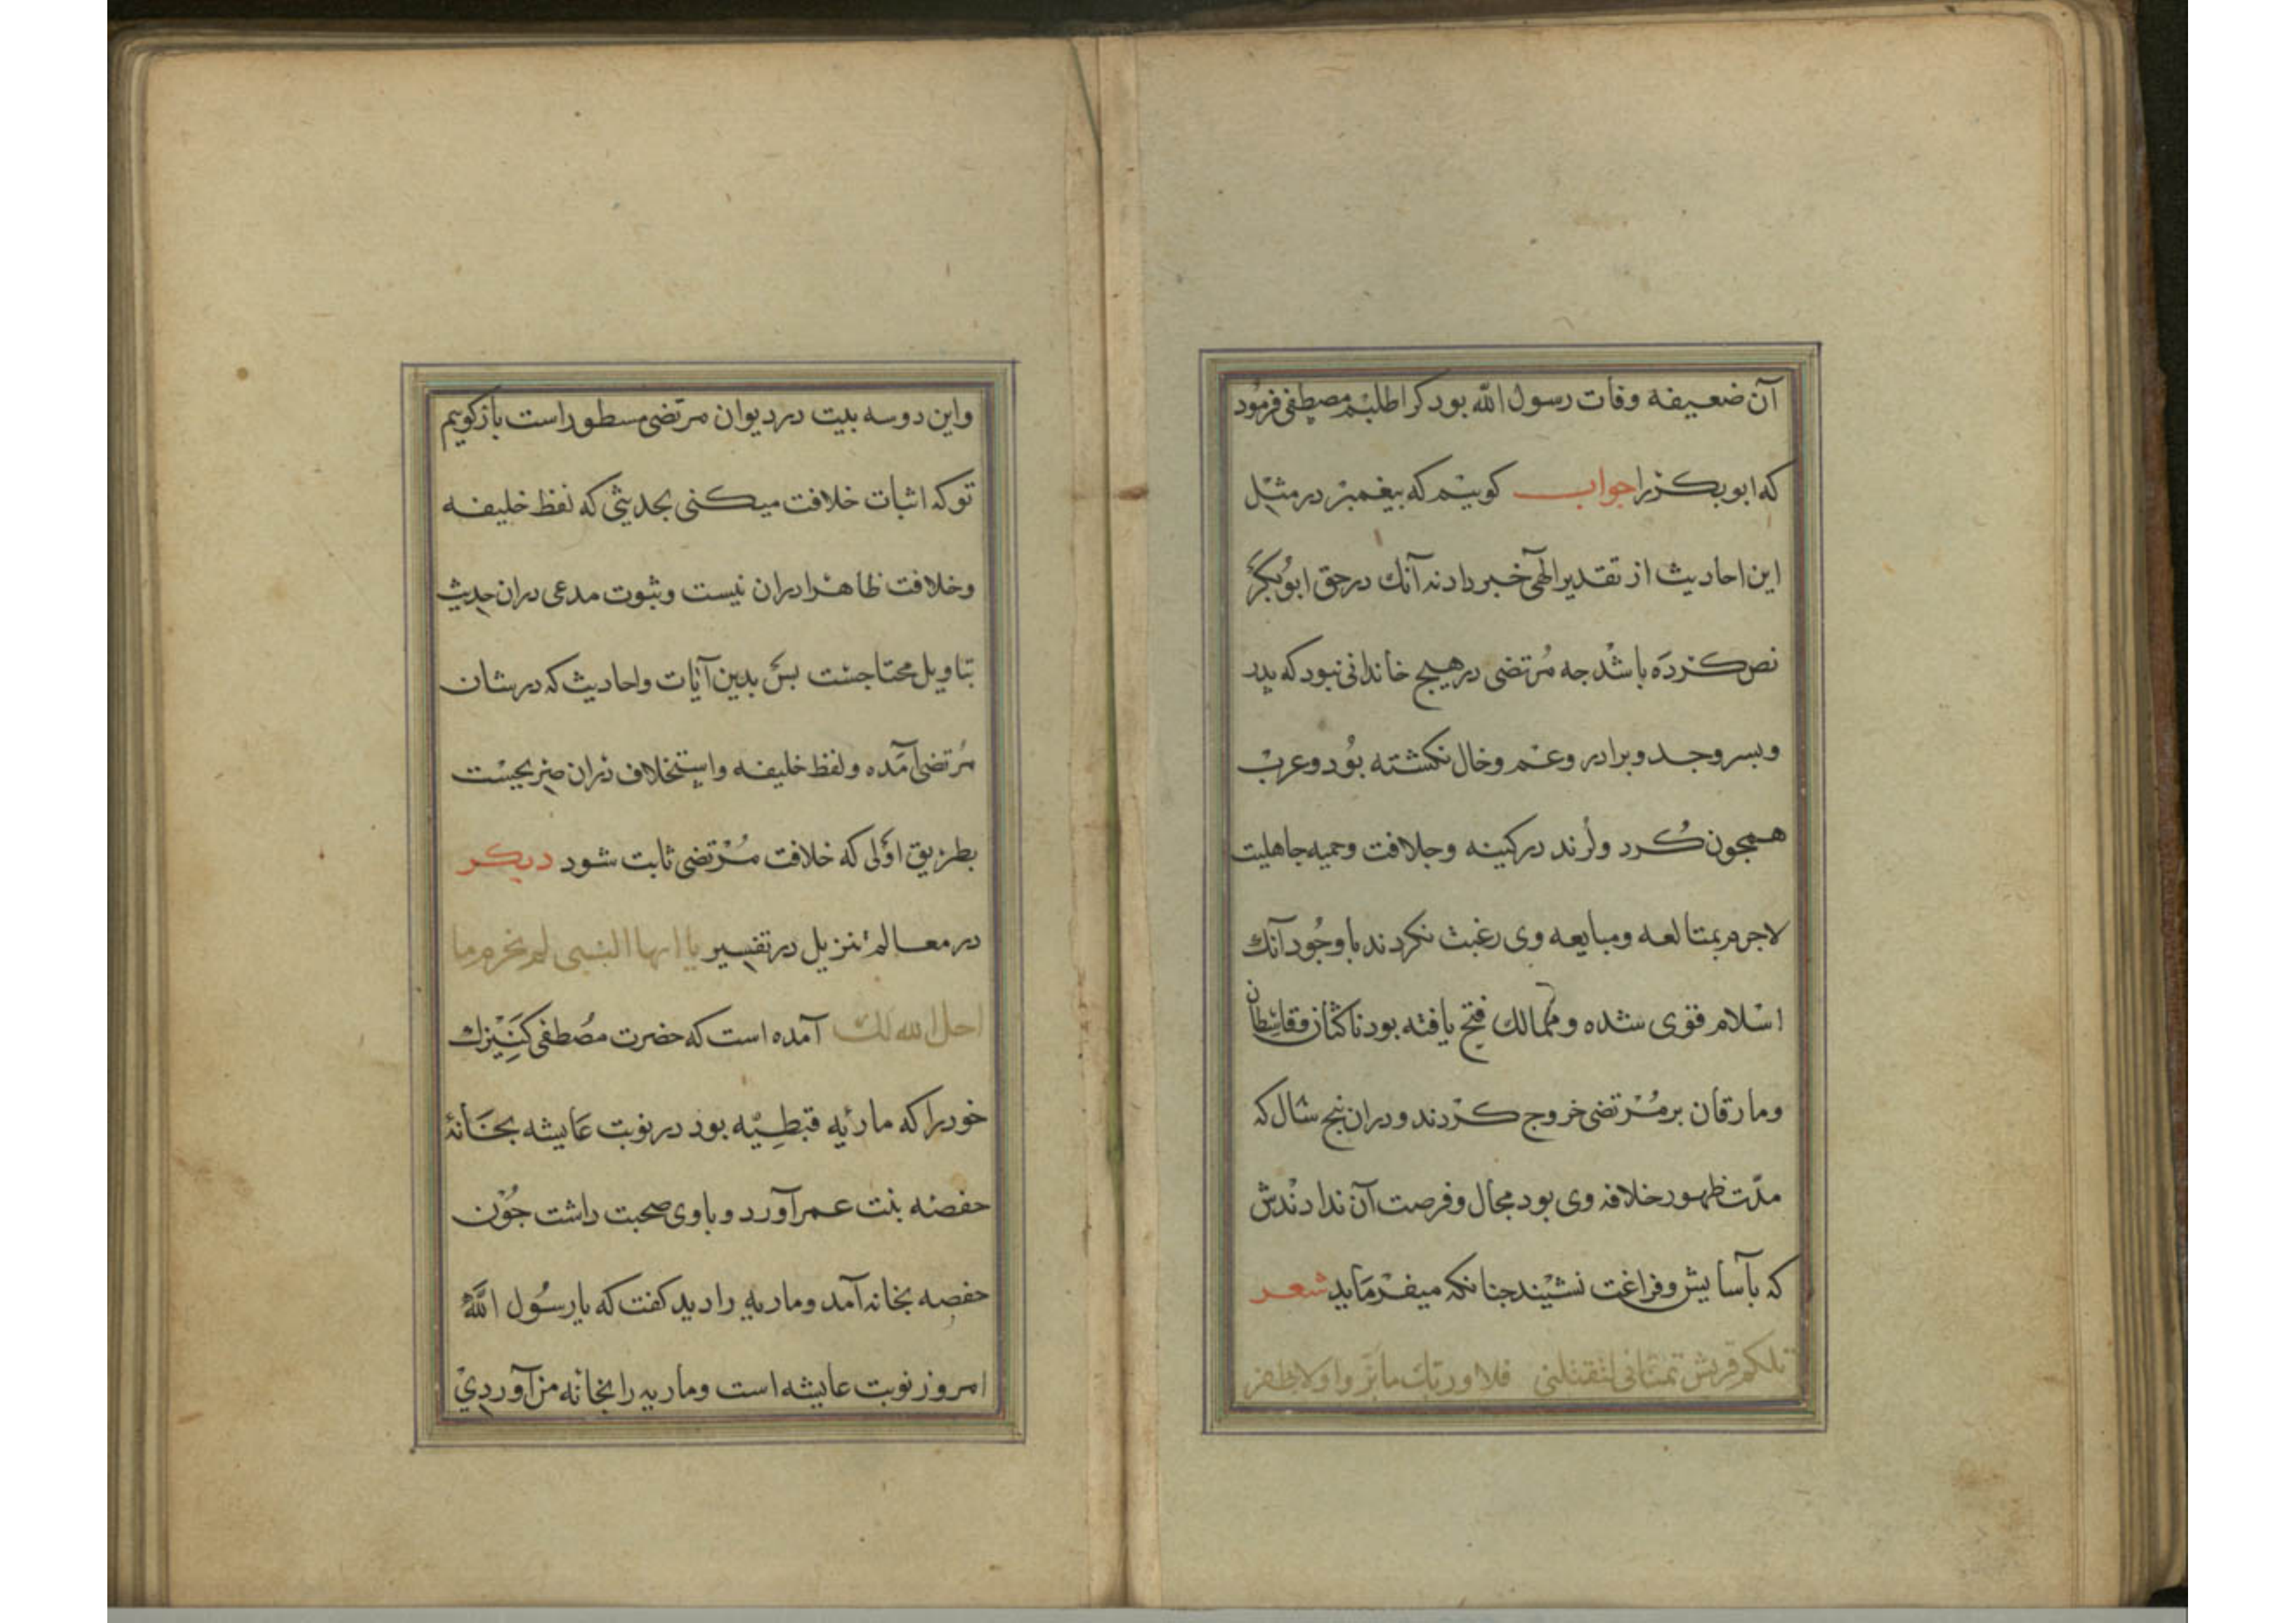 آن ضعیفه وفات رسول الله بود کرا طلبیم مصطفی فرمود
که ابوبکر را جواب کوییم که پیغمبر در مثل
این احادیث از تقدیر الهی خبر داد نه آنك در حق ابوبکر
نص کرده باشد جه مرتضی در هیچ خاندانی نبود که پدر
وبسر وجد وبرادر وعم وخال نکشته بود وعرب
همجون کرد ولرند در کینه وجلافت وحمیه جاهلیت
لاجرم بمتالعه ومبایعه وی رغبت نکردند با وجود آنك
اسلام قوی شده وممالك فتح یافته بود ناکثان وقاسطان
ومارقان بر مرتضی خروج کردند ودران پنج سال که
مدّت ظهور خلافه وی بود مجال وفرصت آن ندادندش
که بآسایش وفراغت نشیند جنانکه میفرماید شعر
تلکم قریش تمنانی لتقتلنی فلا وربك ما بروا ولا ظفر
واین دو سه بیت در دیوان مرتضی مسطور است باز کوییم
تو که اثبات خلافت میکنی بحدیثی که لفظ خلیفه
وخلافت ظاهرا دران نیست وثبوت مدعی دران حدیث
بتاویل محتاجست بس بدین آیات واحادیث که در شان
مرتضی آمده ولفظ خلیفه واستخلاف دران صریحست
بطریق اولی که خلافت مرتضی ثابت شود دیکر
در معالم تنزیل در تفسیر یا ایها النبی لم تحرم ما
احل الله لك آمده است که حضرت مصطفی کنیزك
خود را که ماریه قبطیه بود در نوبت عایشه بخانهٔ
حفصه بنت عمر آورد وباوی صحبت داشت جون
حفصه بخانه آمد وماریه را دید کفت که یا رسول الله
امروز نوبت عایشه است وماریه را بخانه من آوردی